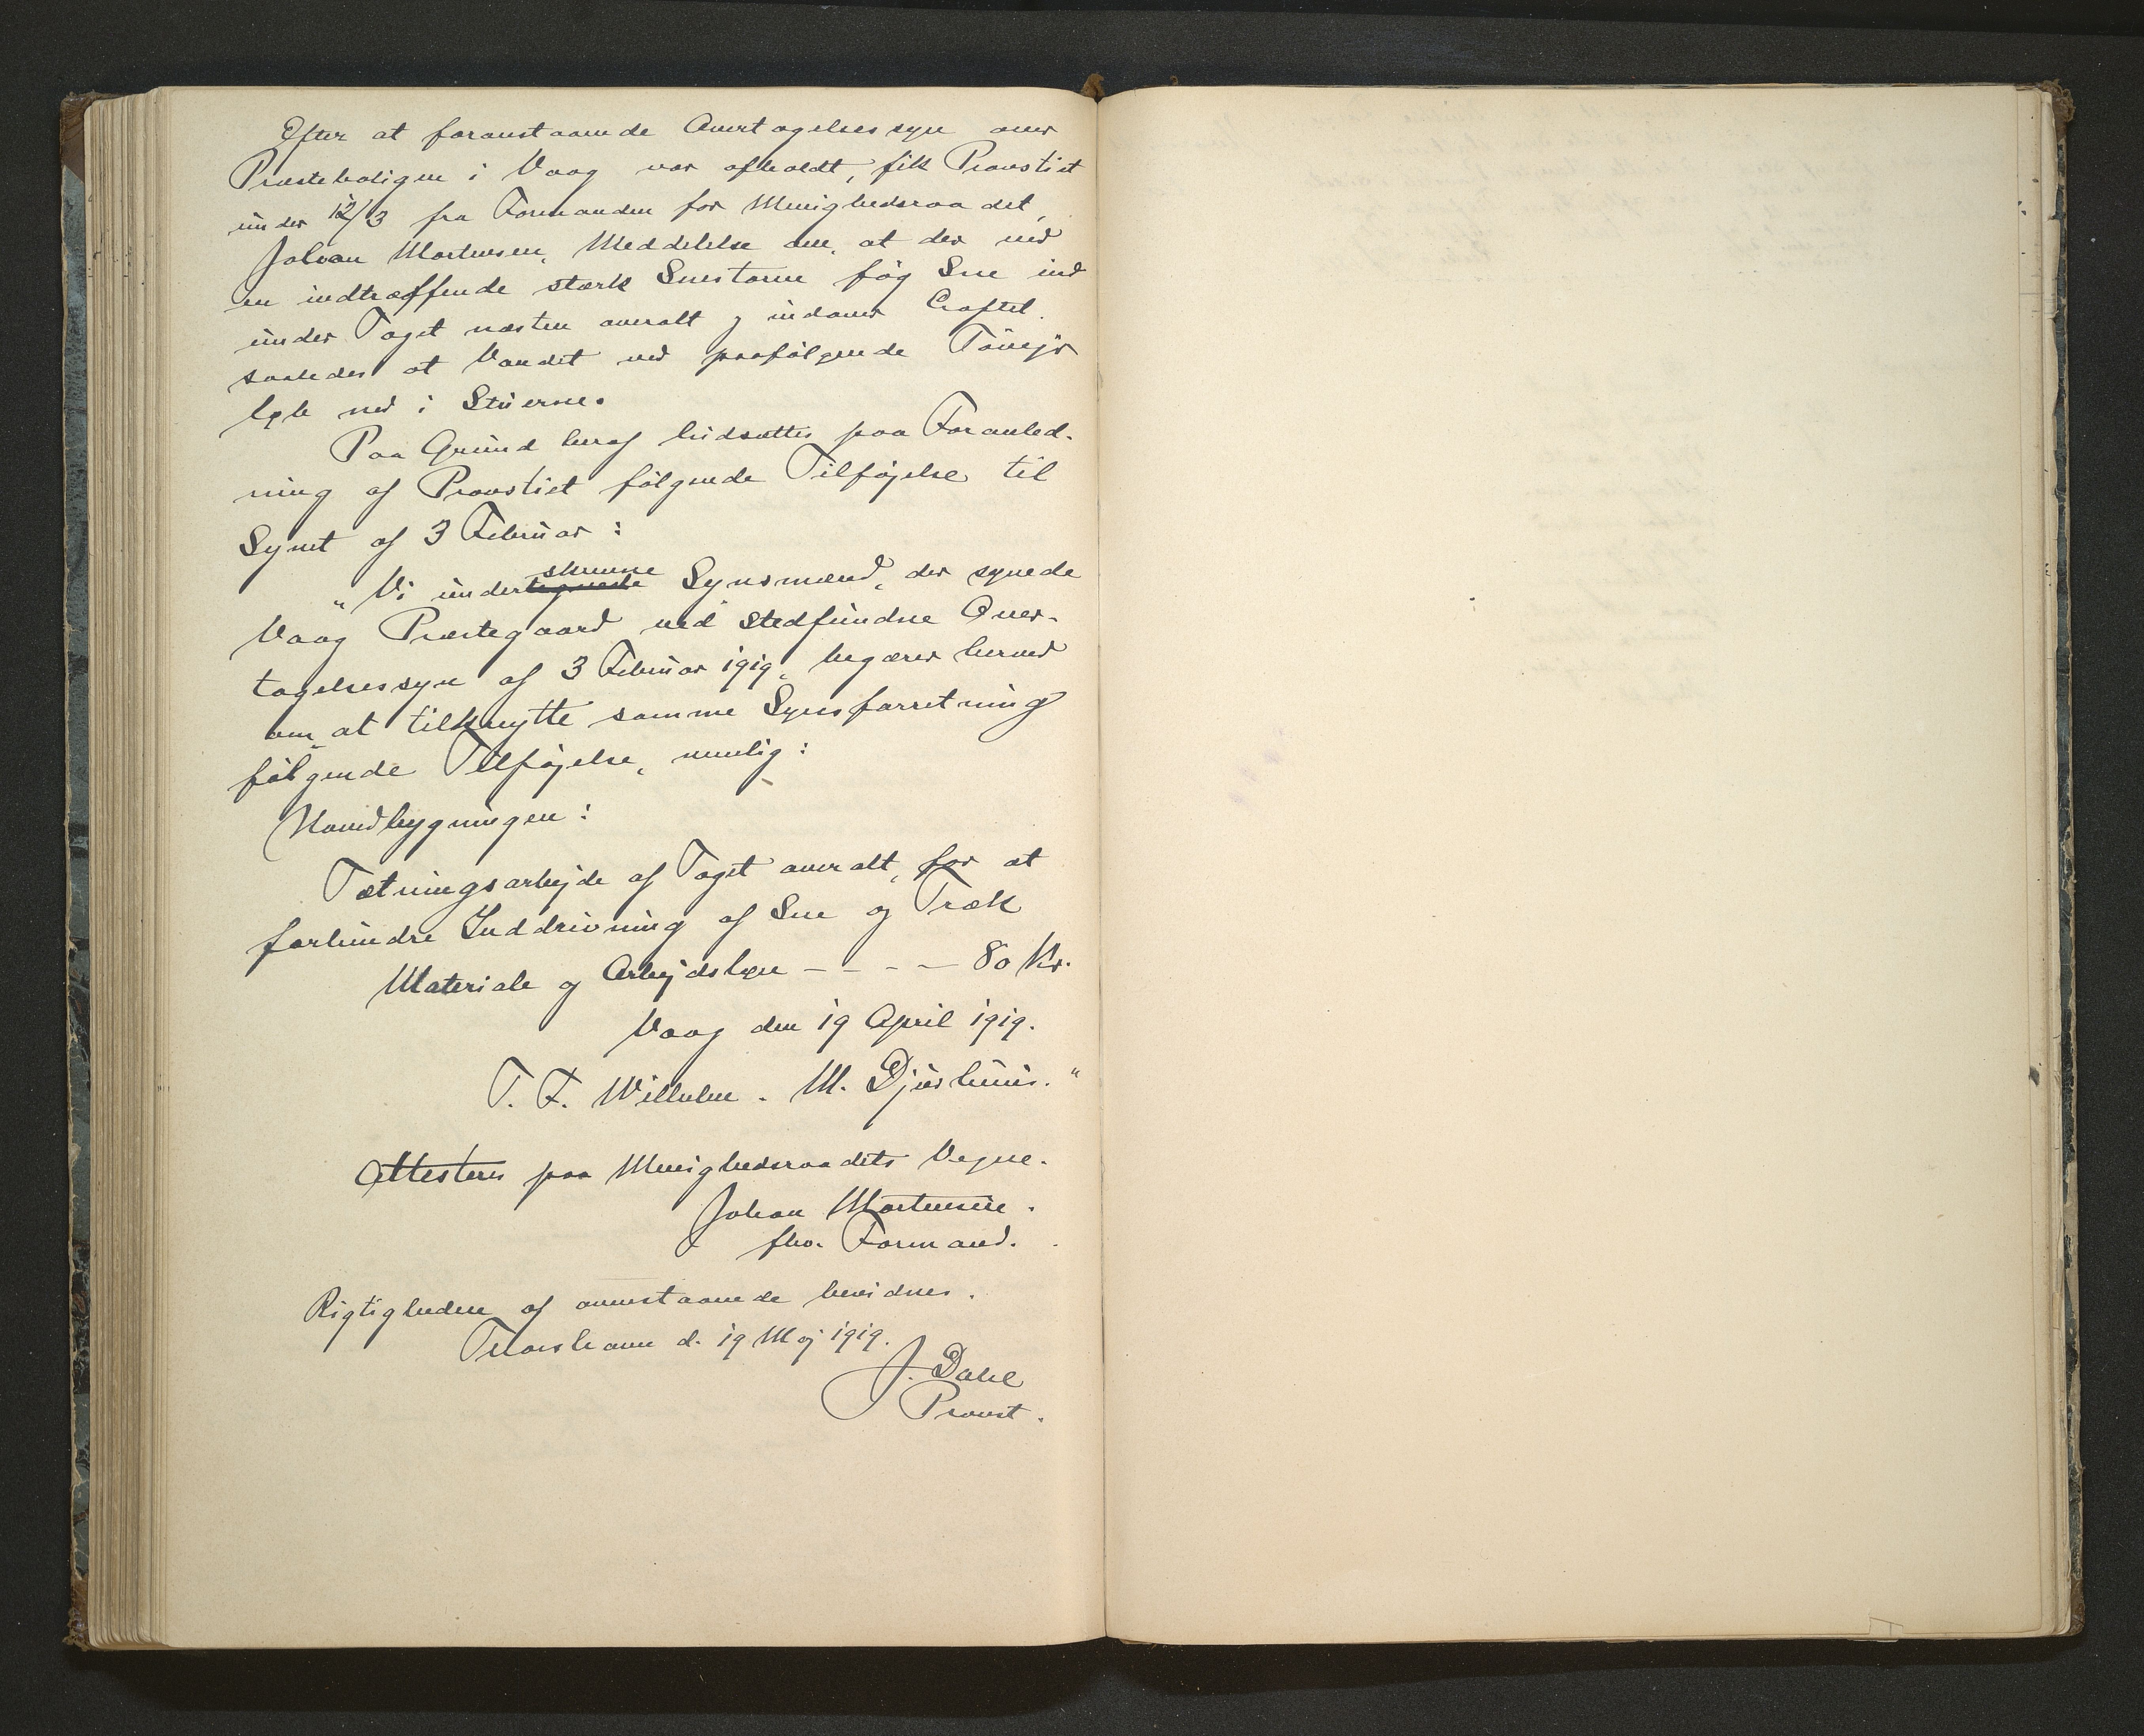 Efter at foranstaaende Overtagelsessyn over
Præsteboligen i Vaag var afholdt, fik Provstiet
under 12/3 fra Formanden for Menighedsraadet,
Johan Mortensen, Meddelelse om, at der ved
en indtræffende stærk Snestorm føg Sne ind
under Taget næsten overalt og indover Loftet.
saaledes at Vandet ved paafølgende Tøvejr
løb ned i Stuerne.
Paa Grund heraf indsættes paa Foranled-
ning af Provstiet følgende Tilføjelse til
Synet af 3 Februar:
"Vi undertegnede skrevne Synsmænd, der synede
Vaag Præstegaard ved stedfundne Over-
tagelsessyn af 3 Februar 1919, begærer herved
om at tilknytte samme Synsforretning
følgende Tilføjelse, nemlig:
Hovedbygningen:
Tætningsarbejde af Taget overalt, for at
forhindre Inddrivning af Sne og Træk
Materiale og Arbejdsløn - - - - 80 Kr.
Vaag den 19 April 1919.
T. F. Wilhelm. M. Djurhuus."
Attesteres paa Menighedsraadets Vegne.
Johan Mortensen.
fhv. Formand.
Rigtigheden af ovenstaaende bevidnes.
Thorshavn d. 19 Maj 1919.
J. Dahl
Provst.